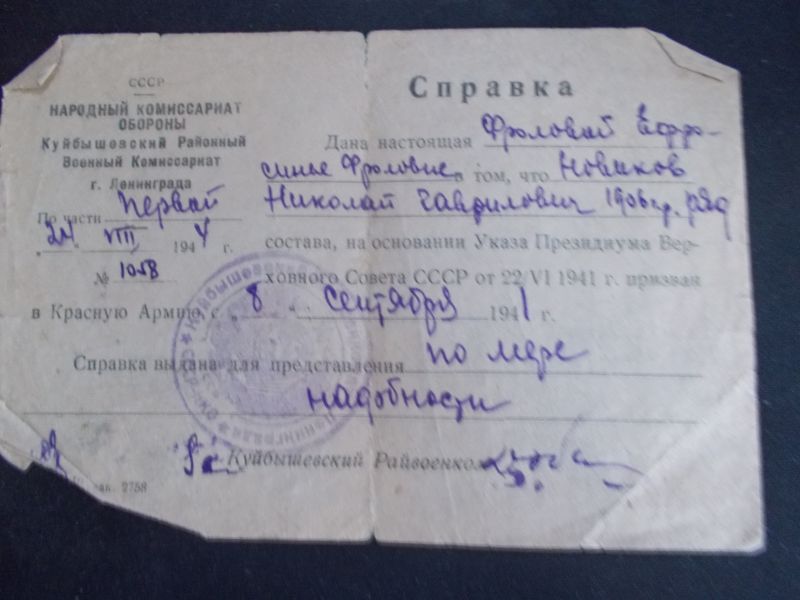 СССР
НАРОДНЫЙ КОМИССАРИАТ
ОБОРОНЫ
Куйбышевский Районный
Военный Комиссариат
г. Ленинграда
По части первой
"24" VIII 1944 г.
№ 1058
Справка
Дана настоящая Фроловой Ефро-
синье Фроловне в том, что Новиков
Николай Гаврилович 1906 г.р. ряд
состава, на основании Указа Президиума Вер-
ховного Совета СССР от 22/VI 1941 г. призван
в Красную Армию, с "8" сентября 1941 г.
Справка выдана для представления по мере
надобности
Куйбышевский Райвоенком
зак. 2758